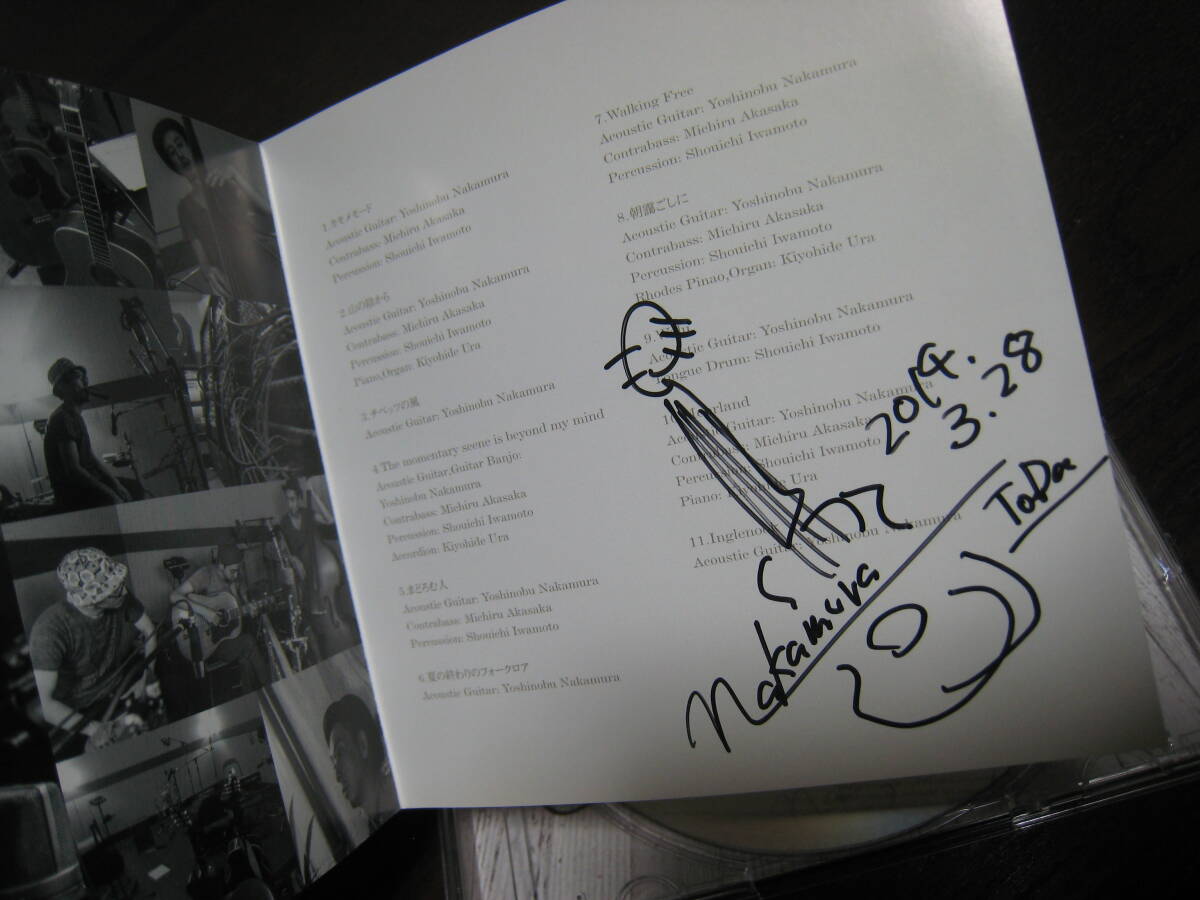 1.ケセメモード
Acoustic Guitar: Yoshinobu Nakamura
Contrabass: Michiru Akasaka
Percussion: Shouichi Iwamoto
2.山の陰から
Acoustic Guitar: Yoshinobu Nakamura
Contrabass: Michiru Akasaka
Percussion: Shouichi Iwamoto
Piano,Organ: Kiyohide Ura
3.チベッツの風
Acoustic Guitar: Yoshinobu Nakamura
4.The momentary scene is beyond my mind
Acoustic Guitar,Guitar Banjo:
Yoshinobu Nakamura
Contrabass: Michiru Akasaka
Percussion: Shouichi Iwamoto
Accordion: Kiyohide Ura
5.まどろむ人
Acoustic Guitar: Yoshinobu Nakamura
Contrabass: Michiru Akasaka
Percussion: Shouichi Iwamoto
6.夏の終わりのフォークロア
Acoustic Guitar: Yoshinobu Nakamura
7.Walking Free
Acoustic Guitar: Yoshinobu Nakamura
Contrabass: Michiru Akasaka
Percussion: Shouichi Iwamoto
8.朝靄ごしに
Acoustic Guitar: Yoshinobu Nakamura
Contrabass: Michiru Akasaka
Percussion: Shouichi Iwamoto
Rhodes Pinao,Organ: Kiyohide Ura
9.
Acoustic Guitar: Yoshinobu Nakamura
Tongue Drum: Shouichi Iwamoto
10.
Acoustic Guitar: Yoshinobu Nakamura
Contrabass: Michiru Akasaka
Percussion: Shouichi Iwamoto
Piano: Kiyohide Ura
11.Inglenook
Acoustic Guitar: Yoshinobu Nakamura
2014.
3.28
Nakamura
ToDa